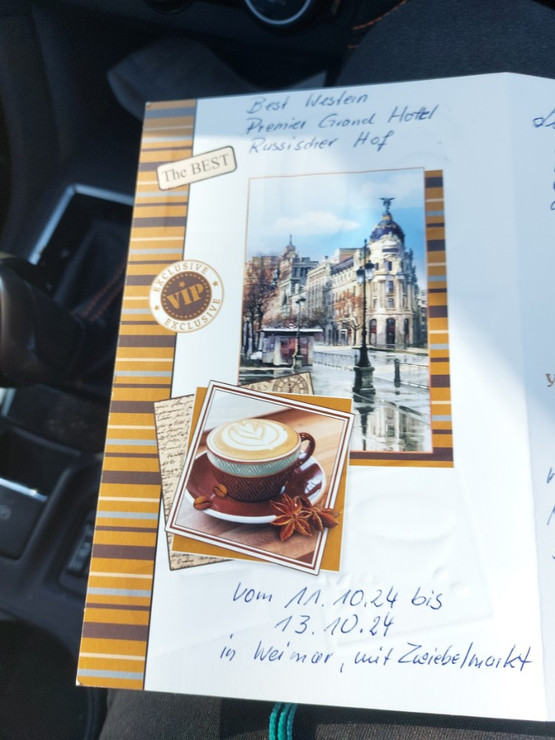 Best Western
Premier Grand Hotel
Russischer Hof
The BEST
EXCLUSIVE
VIP
EXCLUSIVE
vom 11.10.24 bis
13.10.24
in Weimar, mit Zwiebelmarkt